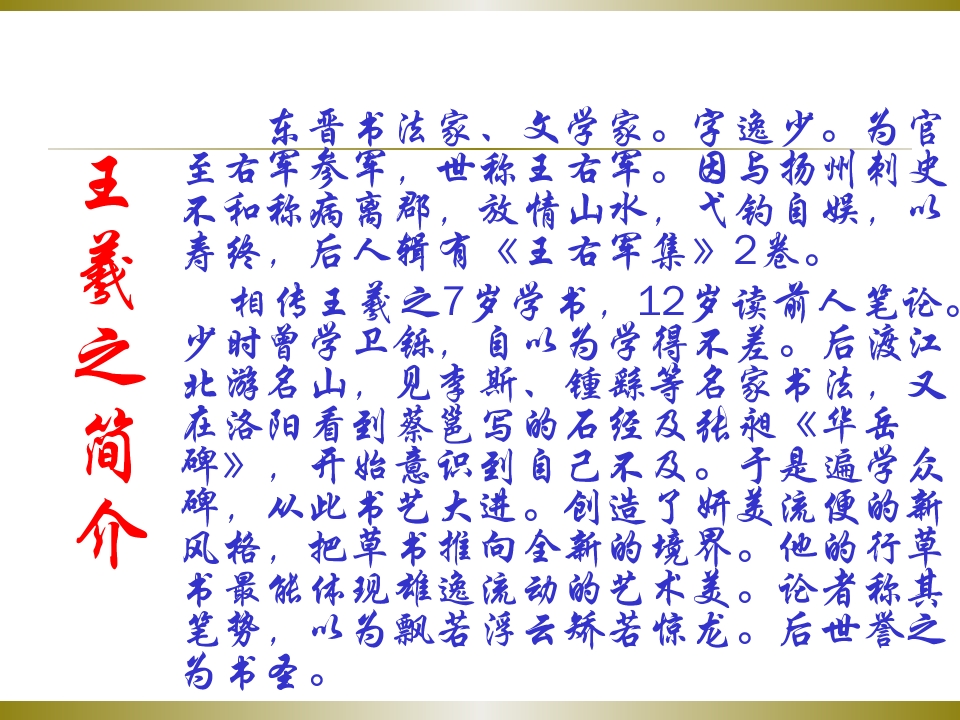 王羲之简介
东晋书法家、文学家。字逸少。为官
至右军参军，世称王右军。因与扬州刺史
不和称病离郡，放情山水，弋钓自娱，以
寿终，后人辑有《王右军集》2卷。
相传王羲之7岁学书，12岁读前人笔论。
少时曾学卫铄，自以为学得不差。后渡江
北游名山，见李斯、锺繇等名家书法，又
在洛阳看到蔡邕写的石经及张昶《华岳
碑》，开始意识到自己不及。于是遍学众
碑，从此书艺大进。创造了妍美流便的新
风格，把草书推向全新的境界。他的行草
书最能体现雄逸流动的艺术美。论者称其
笔势，以为飘若浮云矫若惊龙。后世誉之
为书圣。